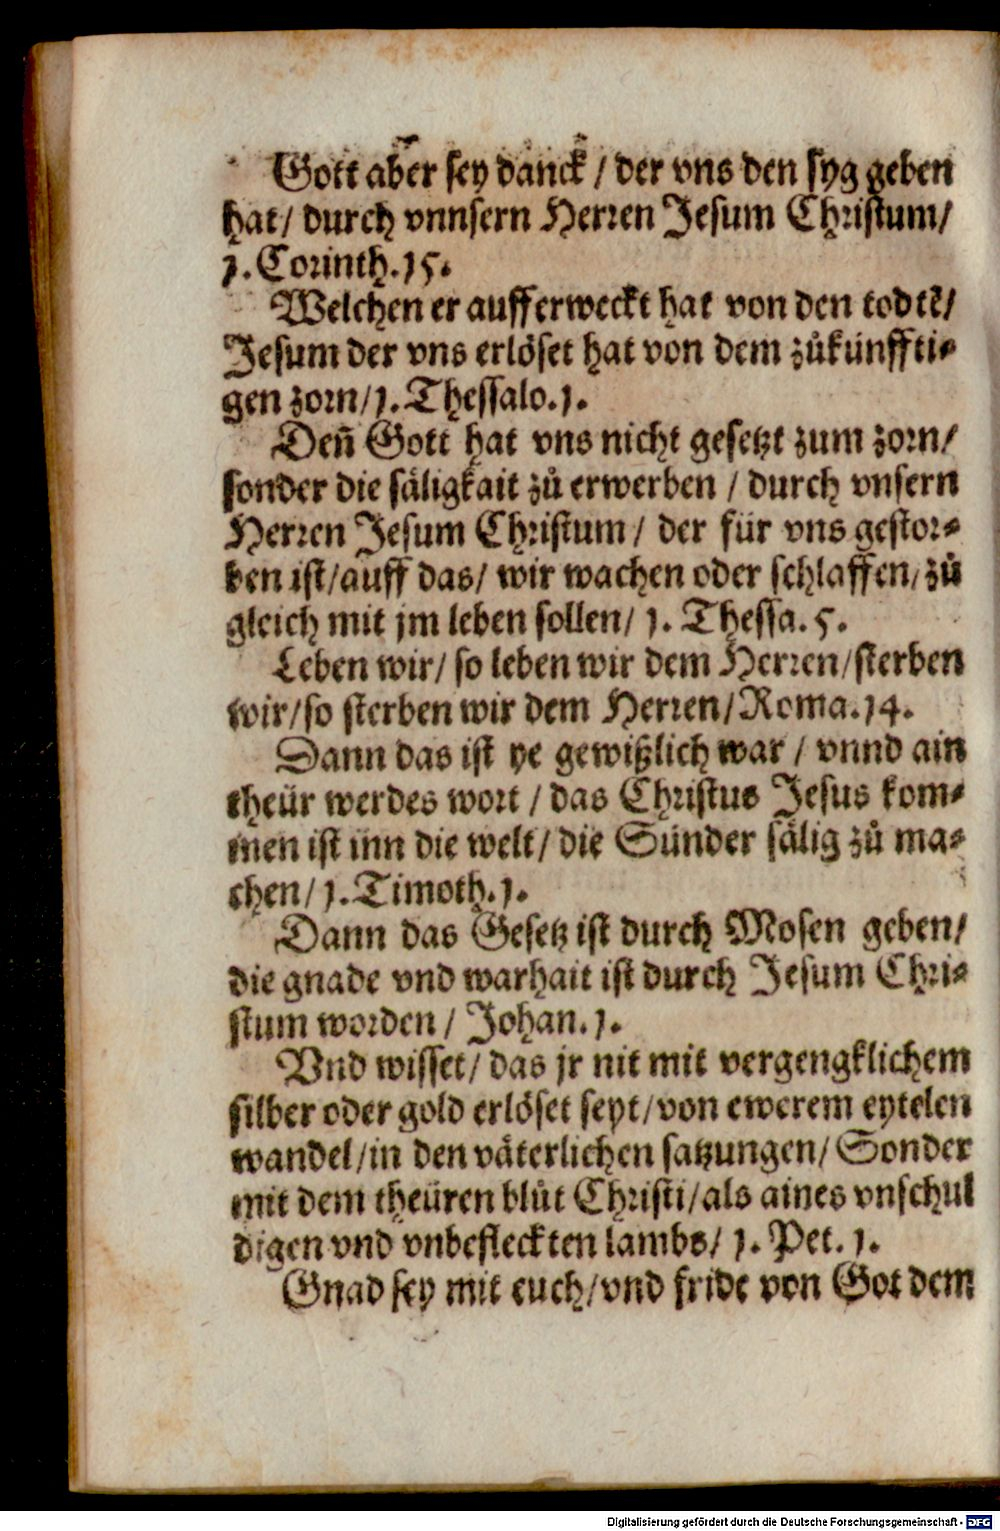 Gott aber sey danck / der vns den syg geben
hat / durch vnnsern Herren Jesum Christum /
1. Corinth. 15.
Welchen er aufferweckt hat von den todtē /
Jesum der vns erlöset hat von dem zůkünffti-
gen zorn / 1. Thessalo. 1.
Deñ Gott hat vns nicht gesetzt zum zorn /
sonder die säligkait zů erwerben / durch vnsern
Herren Jesum Christum / der für vns gestor-
ben ist / auff das / wir wachen oder schlaffen / zů
gleich mit jm leben sollen / 1. Thessa. 5.
Leben wir / so leben wir dem Herren / sterben
wir / so sterben wir dem Herren / Roma. 14.
Dann das ist ye gewißlich war / vnnd ain
theür werdes wort / das Christus Jesus kom-
men ist inn die welt / die Sünder sälig zů ma-
chen / 1. Timoth. 1.
Dann das Gesetz ist durch Mosen geben /
die gnade vnd warhait ist durch Jesum Chri-
stum worden / Johan. 1.
Vnd wisset / das jr nit mit vergengklichem
silber oder gold erlöset seyt / von ewerem eytelen
wandel / in den väterlichen satzungen / Sonder
mit dem theüren blůt Christi / als aines vnschul
digen vnd vnbefleckten lambs / 1. Pet. 1.
Gnad sey mit euch / vnd fride von Got dem
Digitalisierung gefördert durch die Deutsche Forschungsgemeinschaft - DFG